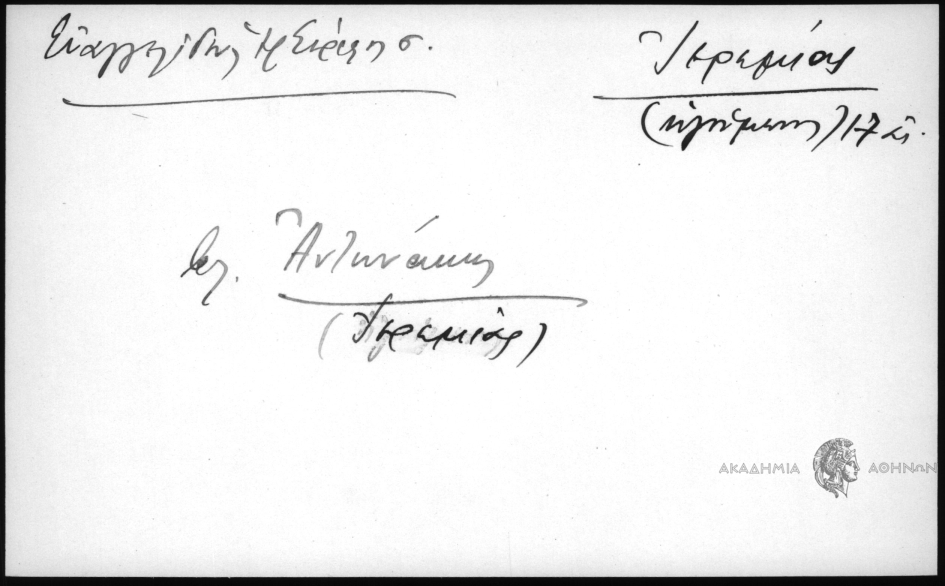 Εὐαγγελίδης
Ἱερεμίας
(ἡγούμενος) 17 αἰ.
βλ. Ἀντωνάκης
(Ἱερεμίας)
ΑΚΑΔΗΜΙΑ ΑΘΗΝΩΝ